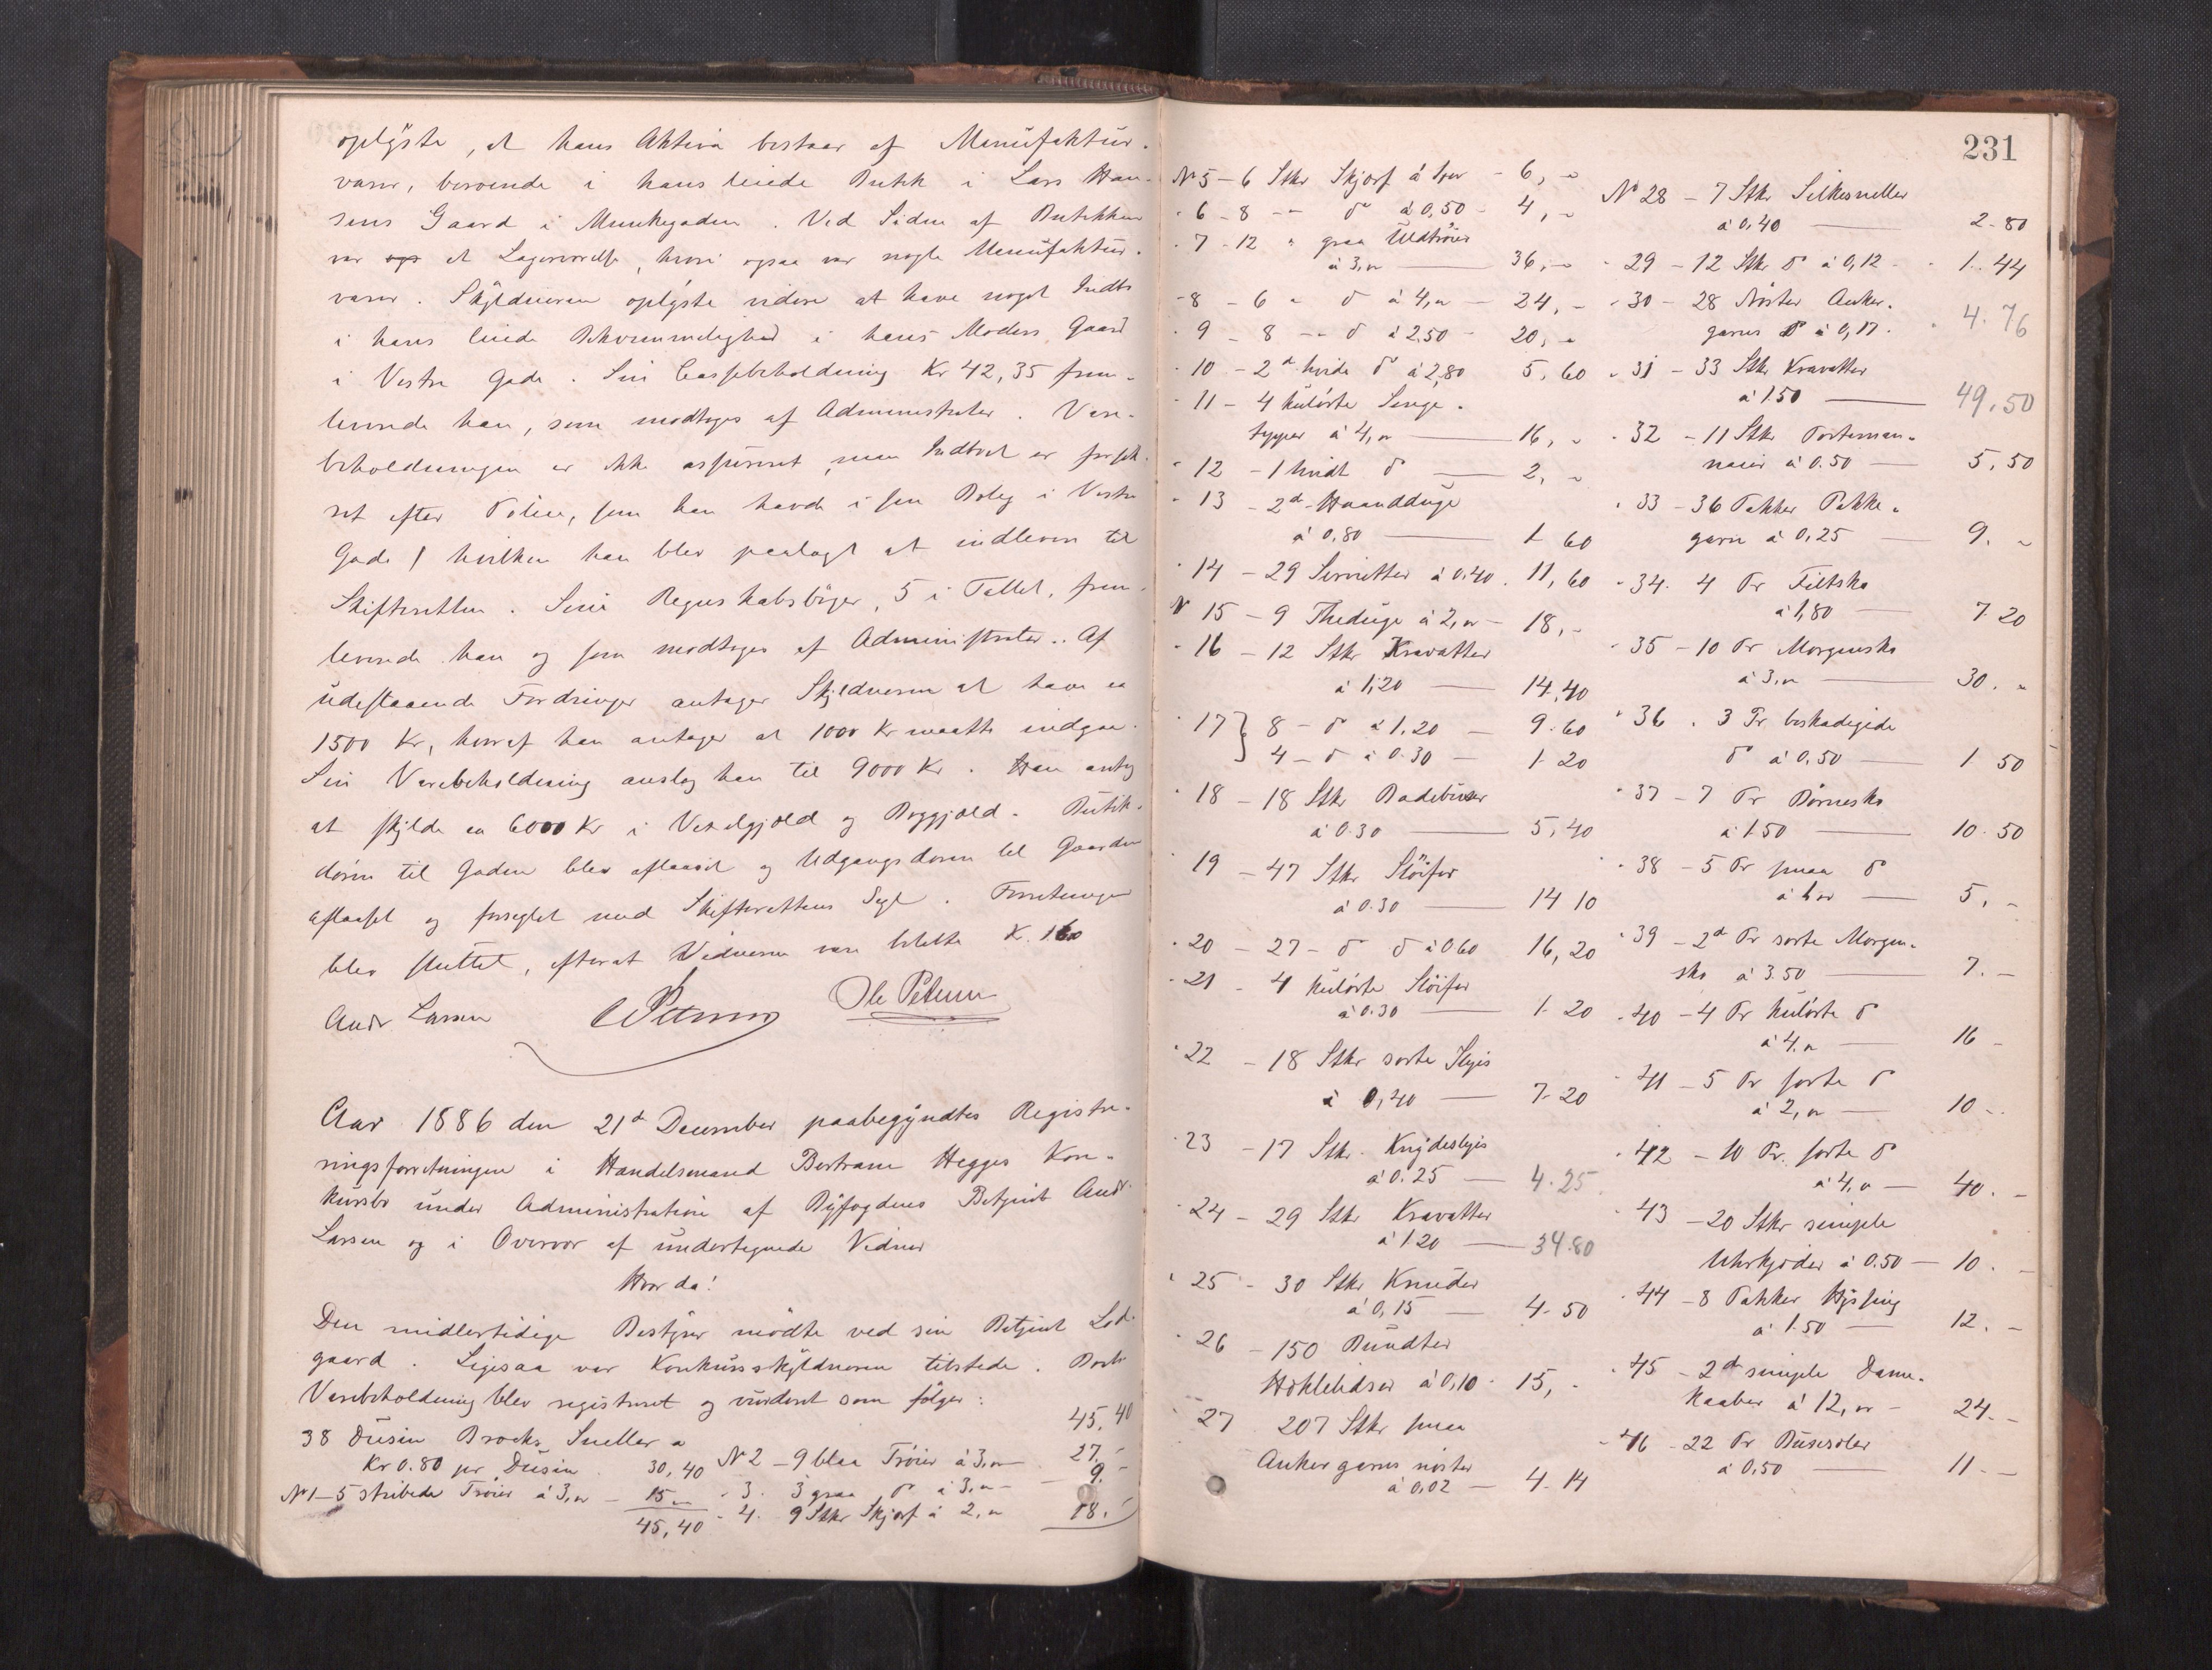 oplyste, at hans Aktiva bestaar af Manufaktur-
varer, beroende i hans leiede Butik i Lars Han-
sens Gaard i Munkegaden. Ved Siden af Butikken
var et Lagerværelse, hvori ogsaa var nogle Manufaktur-
varer. Skyldneren oplyste videre at have noget Indbo
i hans leiede Bekvemmelighed i hans Moders Gaard
i Vestre Gade. Sin Cassebeholdning Kr 42,35 frem-
leverede han, som modtoges af Administrator. Vare-
beholdningen er ikke assureret, men Indboet er forsik-
ret efter Police, som han havde i sin Bolig i Vestre
Gade, hvilken han blev paalagt at indlevere til
Skifteretten. Sine Regnskabsbøger, 5 i Tallet, frem-
leverede han og som modtoges af Administrator. Af
udestaaende Fordringer antager Skyldneren at have ca
1500 Kr, hvoraf han antager at 1000 Kr maatte indgaa.
Sin Varebeholdning anslog han til 9000 Kr. Han antog
at skylde ca 6000 Kr i Vexelgjæld og Boggjæld. Butik-
døren til Gaden blev aflaaset og Udgangsdøren til Gaarden
aflaaset og forseglet med Skifterettens Segl. Forretningen
blev sluttet, efterat Vidnerne vare betalte K. 1.60
Andr Larsen Ole Petersen
Aar 1886 den 21de December paabegyndtes Registre-
ringsforretningen i Handelsmand Bertram Hegges Kon-
kursbo under Administration af Byfogdens Betjent Andr.
Larsen og i Overvær af undertegnede Vidner
Hvor da!
Den midlertidige Bestyrer mødte ved sin Betjent Lod-
gaard. Ligesaa var Konkursskyldneren tilstede. Boets
Varebeholdning blev registreret og vurderet som følger:
38 Dusin Brooks Sneller a
Kr 0.80 pr Dusin 30,40
No 1 - 5 stribede Trøier à 3,00 - 15 "
45,40
45,40
No 2 - 9 blaa Trøier à 3,00 27,-
" 3. 3 graa do à 3,00 - 9.-
" 4. 9 Stkr Skjørf à 2,00 18.-
231
No 5 - 6 Stkr Skjørf à 1,00 - 6, "
" 6 - 8 -- do à 0,50 - 4, "
" 7 - 12 " graa Uldtrøier
à 3,00 — 36, "
" 8 - 6 " do à 4,00 - 24, "
" 9 - 8 -- do à 2.50 - 20, "
" 10 - 2de hvide do à 2,80 5,60
" 11 - 4 kulørte Senge-
tepper à 4,00 — 16, "
" 12 - 1 hvidt do — 2, "
" 13 - 2de Haandduge
à 0,80 — 1 60
" 14 - 29 Servietter à 0.40. 11,60
No 15 - 9 Theduge à 2,00 - 18,-
" 16 - 12 Stkr Kravatter
à 1,20 — 14.40
" 17 } 8 - do à 1,20 — 9.60
4 - do à 0.30 — 1.20
" 18 - 18 Stkr Badebuxer
à 0.30 — 5,40
" 19 - 47 Stkr Sløifer
à 0.30 — 14 10
" 20 - 27 - do do à 0.60 16,20
" 21 - 4 kulørte Sløifer
à 0.30 — 1.20
" 22 - 18 Stkr sorte Slips
à 0,40 — 7.20
" 23 - 17 Stkr. Knydeslips
à 0.25 — 4.25
" 24 - 29 Stkr Kravatter
à 1 20 — 34.80
" 25 - 30 Stkr Knuder
à 0,15 — 4.50
" 26 - 150 Bundter
Hæklelidser à 0,10 - 15,-
" 27 207 Stkr smaa
Ankergarns nøster
à 0,02 — 4.14
No 28 - 7 Stkr Silkesneller
à 0.40 — 2.80
" 29 - 12 Stkr do à 0,12 - 1.44
" 30 - 28 Nøster Anker-
garns à 0,17. 4.76
" 31 - 33 Stkr Kravatter
à 1.50 — 49.50
" 32 - 11 Stkr Portemon-
naier à 0.50 — 5,50
" 33 - 36 Pakker Pakke-
garn à 0,25 — 9. "
" 34. 4 Pr Filtsko
à 1,80 — 7 20
" 35 - 10 Pr Morgensko
à 3,00 — 30. "
" 36. 3 Pr beskadigede
do à 0,50 — 1 50
" 37 - 7 Pr Børnesko
à 1.50 — 10.50
" 38 - 5 Pr smaa do
à 1,00 — 5, -
" 39 - 2de Pr sorte Morgen-
sko à 3.50 — 7. -
" 40 - 4 Pr kulørte do
à 4,00 — 16 -
" 41 - 5 Pr sorte do
à 2,00 — 10 -
" 42 - 10 Pr. sorte do
à 4,00 — 40. -
" 43 - 20 Stkr simple
Uhrkjæder à 0.50 — 10. -
" 44 - 8 Pakker Hyssing
à 1.50 — 12. -
" 45 - 2de simple Dame-
kaaber à 12,00 - 24. -
" 46 - 22 Pr
à 0,50 — 11. -